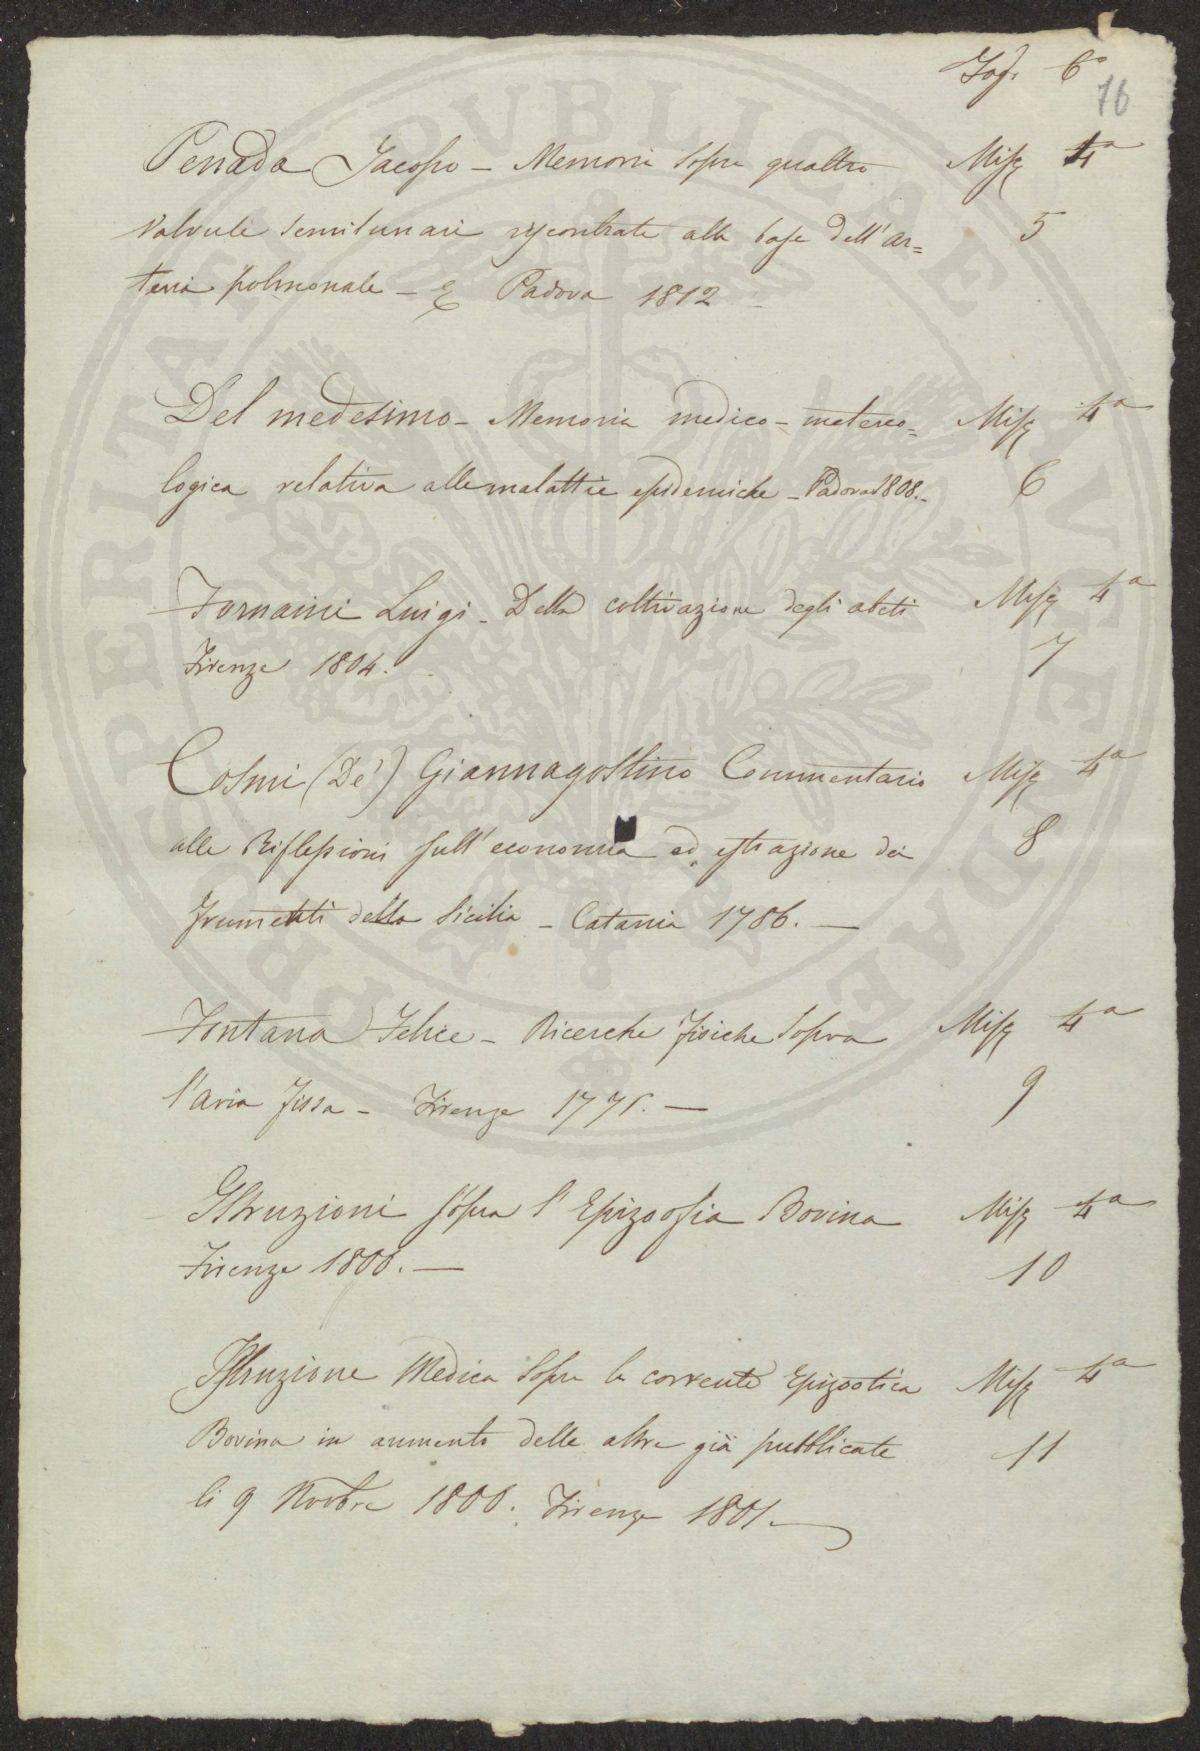 Fog. 6°
16
Penada Jacopo - Memoria sopra quattro Misc 4a
Valvule semilunari riscontrate alla base dell'ar= 5
teria polmonale - & Padova 1812 -
Del medesimo - Memoria medico-metereo= Misc 4a
logica relativa alle malattie epidemiche - Padova 1808.- 6
Fornaini Luigi - Della coltivazione degli abeti Misc 4a
Firenze 1804. 7
Cosmi (De') Giannagostino Commentario Misc 4a
alle Riflessioni sull'economia ed estrazione dei 8
frumenti della Sicilia - Catania 1786. -
Fontana Felice - Ricerche fisiche sopra Misc 4a
l'aria fissa - Firenze 1775. - 9
Istruzioni sopra l'Epizoozia Bovina Misc 4a
Firenze 1800. - 10
Istruzione Medica sopra la corrente Epizootica Misc 4a
Bovina in aumento delle altre già pubblicate 11
li 9 Novbre 1800. Firenze 1801.-
PROSPERITAS PUBLICAE SALUTIS